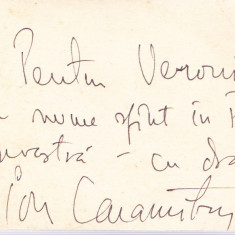 Pentru Veroni
nume sfînt în
noastră – cu dra
Ion Caramitru